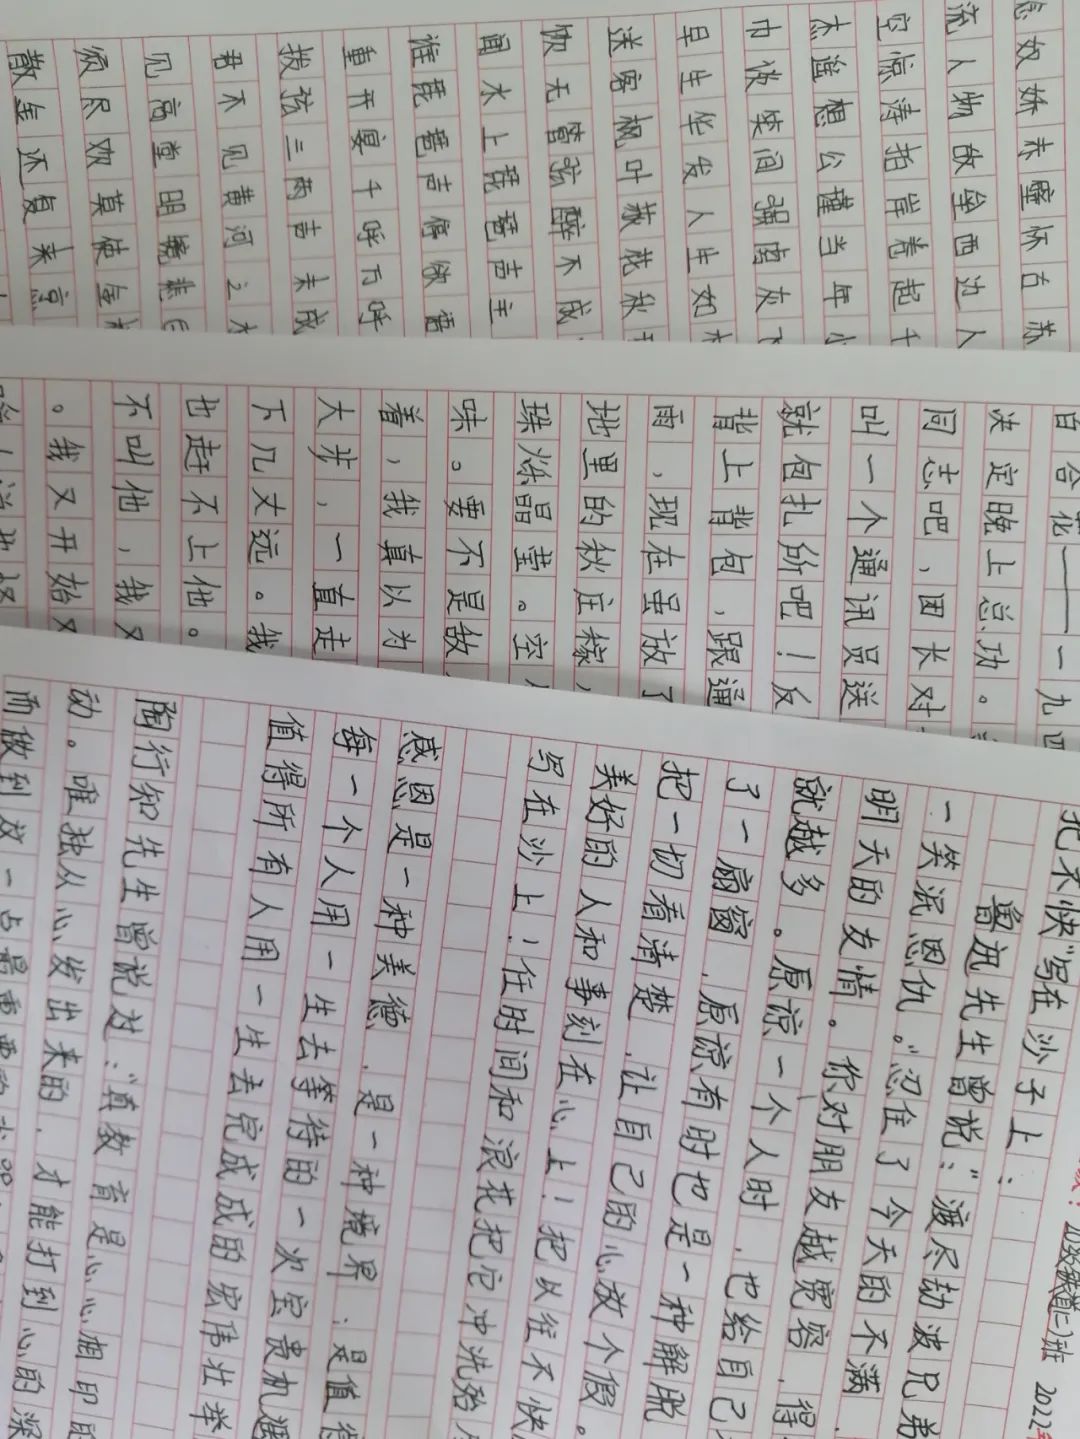 念奴娇赤壁怀古苏
流人物故垒西边人
空惊涛拍岸卷起千
杰遥想公瑾当年小
巾谈笑间强虏灰飞
早生华发人生如
送客枫叶荻花秋
惨无管弦醉不成
闻水上琵琶声主
谁琵琶声停欲语
重开宴千呼万呼
拨弦三两声未成
君不见黄河之水
见高堂明镜悲白
须尽欢莫使金
散金还复来烹
百合花——一九四
决定晚上总功。
同志吧，团长对
叫一个通讯员送
就包扎所吧！反
揹上背包，跟通
雨，现在虽放了
地里的秋庄稼，
珠烁晶莹。空
味。要不是敌
着，我真以为
大步，一直走
下几丈远。我
也赶不上他。
不叫他，我又
。我又开始又
级教道(二)班 2022年
把不快"写在沙子上：
鲁迅先生曾说："渡尽劫波兄弟
一笑泯恩仇。"忍住了今天的不满，
明天的友情。你对朋友越宽容，得
就越多。原谅一个人时，也给自己
了一扇窗，原谅有时也是一种解脱
把一切看清楚，让自己的心放个假。
美好的人和事刻在心上！把以往不快
写在沙上！任时间和浪花把它冲洗殆
感恩是一种美德，是一种境界；是值得
每一个人用一生去等待的一次宝贵机遇
值得所有人用一生去完成成的宏伟壮举
陶行知先生曾说过："真教育是心心相印的
动。唯独从心发出来的，才能打到心的深
而做到这一点最重要的